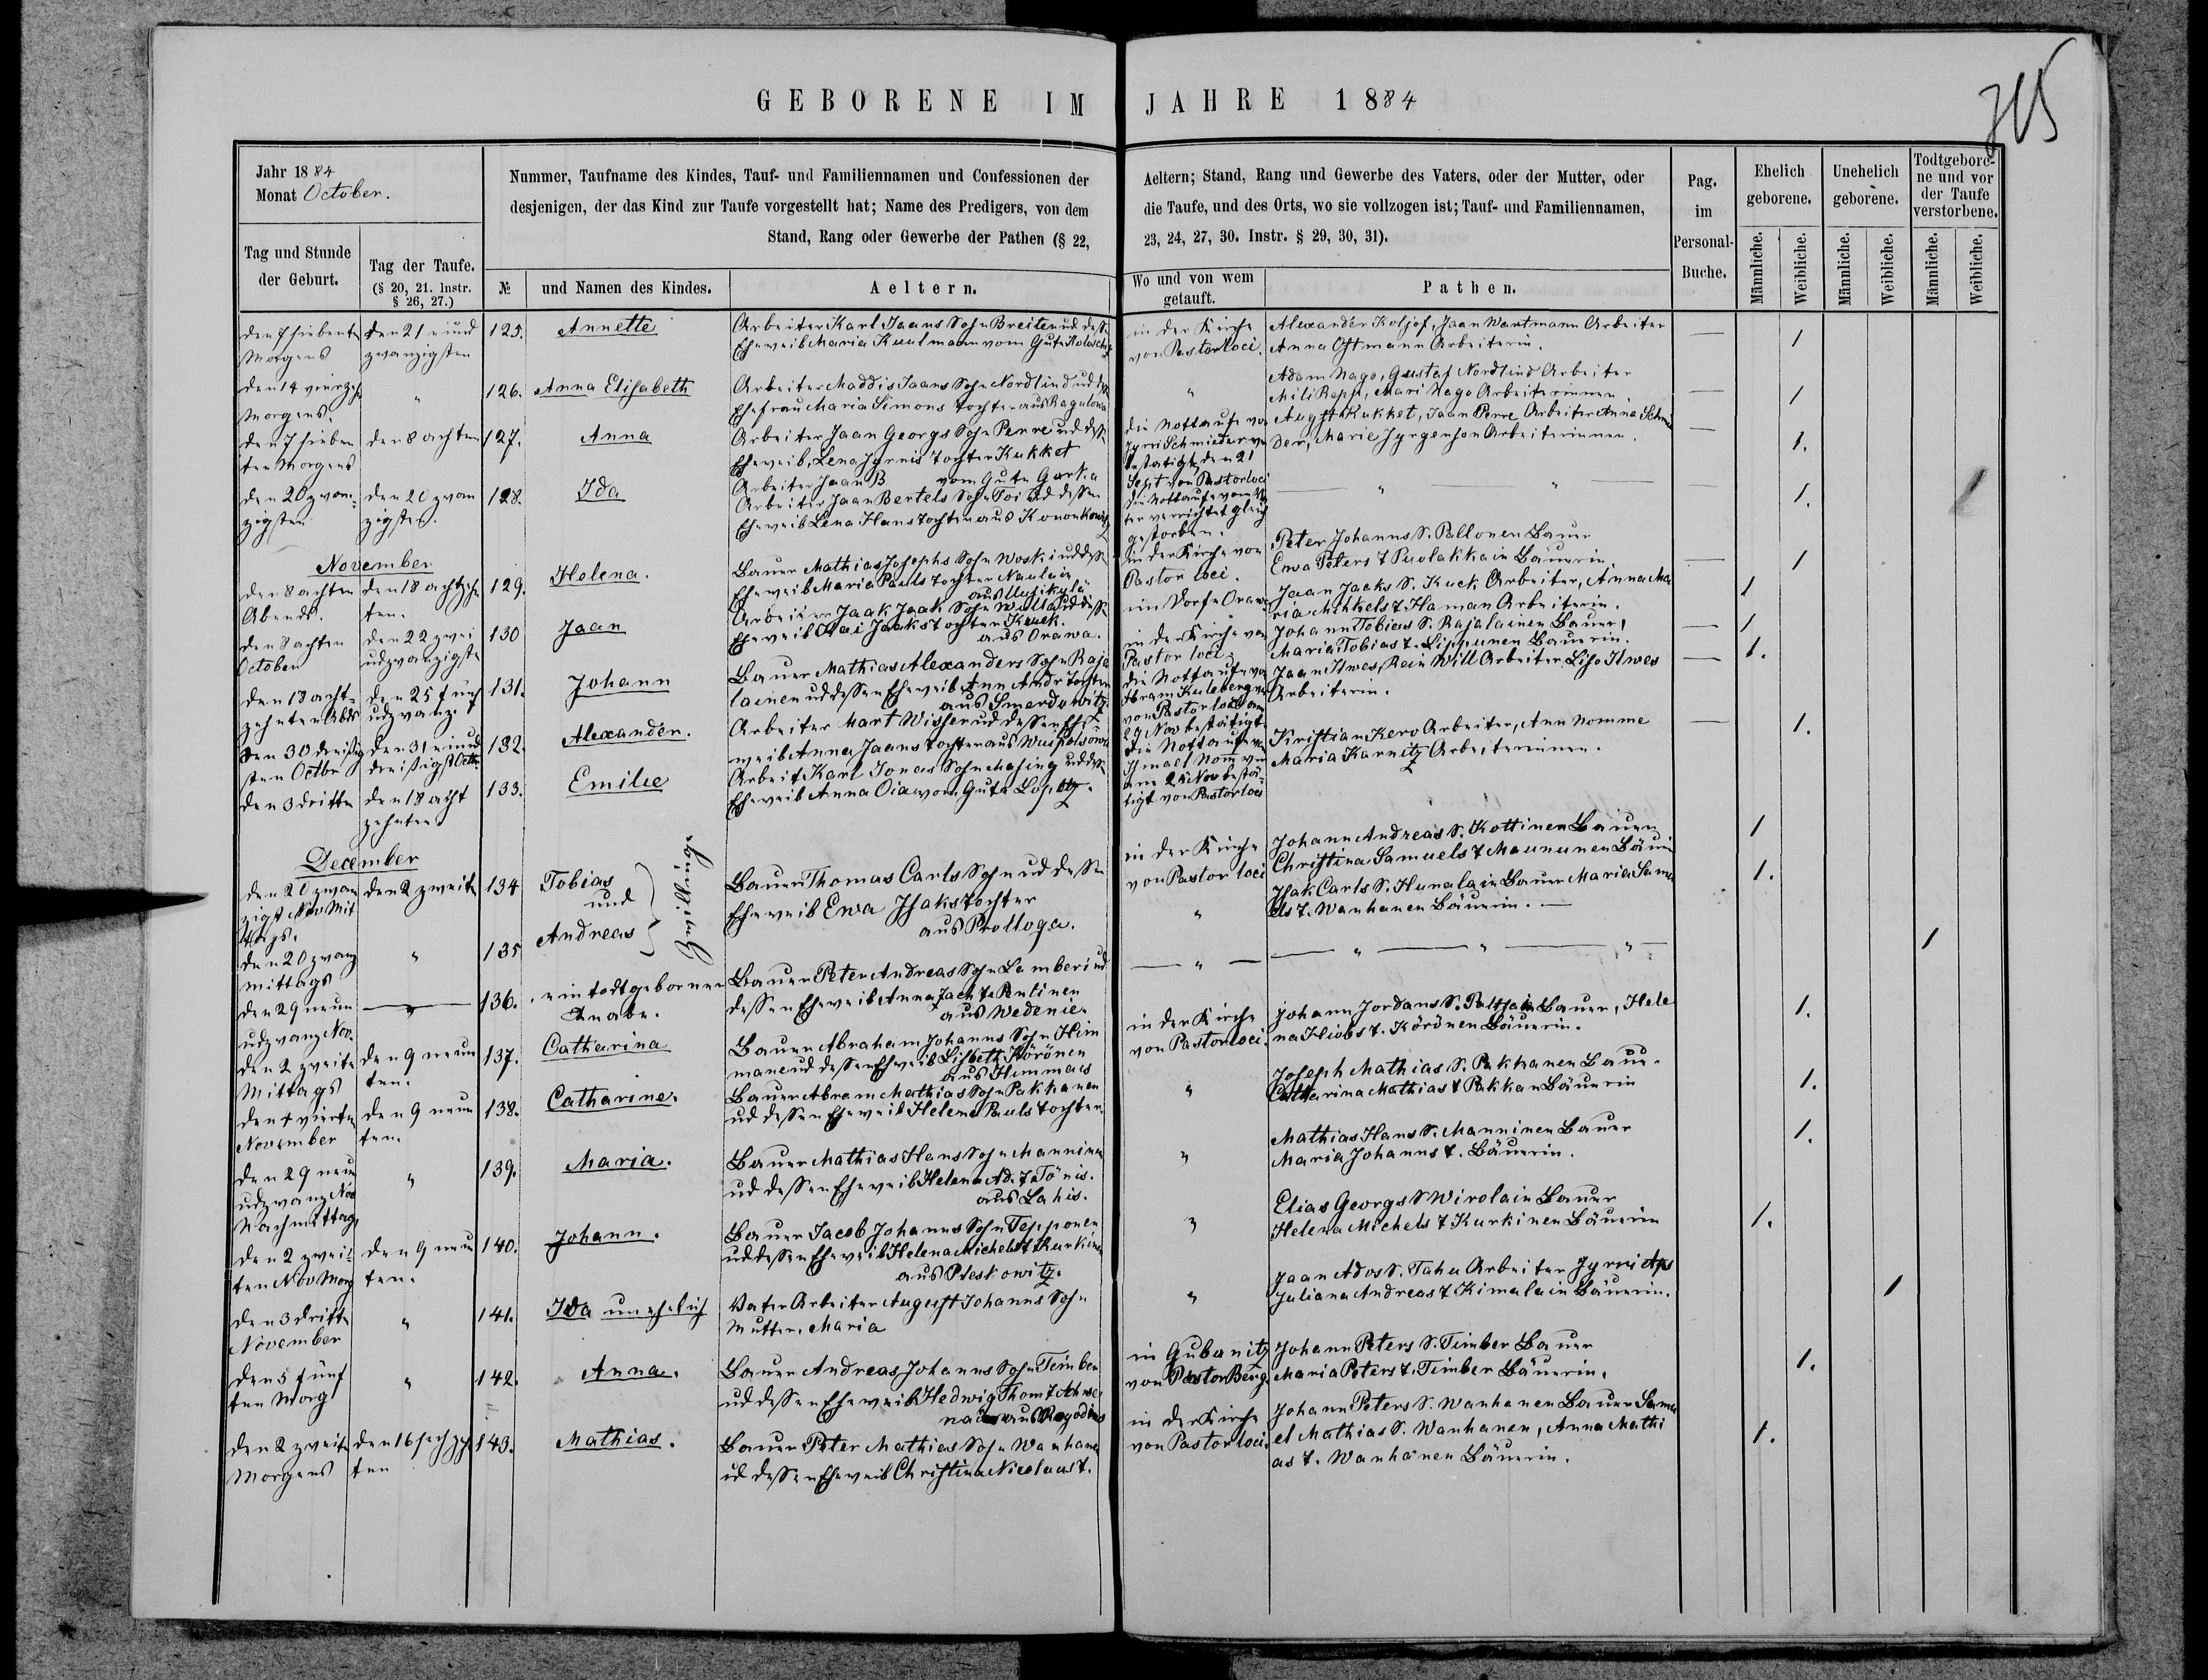 GEBORENE IM JAHRE 1884
315
Jahr 1884
Monat October.
Tag und Stunde der Geburt.
Tag der Taufe.
(§ 20, 21. Instr. § 26, 27.)
Nummer, Taufname des Kindes, Tauf- und Familiennamen und Confessionen der Aeltern; Stand, Rang und Gewerbe des Vaters, oder der Mutter, oder
desjenigen, der das Kind zur Taufe vorgestellt hat; Name des Predigers, von dem die Taufe, und des Orts, wo sie vollzogen ist; Tauf- und Familiennamen,
Stand, Rang oder Gewerbe der Pathen (§ 22, 23, 24, 27, 30. Instr. § 29, 30, 31).
№
und Namen des Kindes.
Aeltern.
Wo und von wem getauft.
Pathen.
Pag. im Personal-Buche.
Ehelich geborene.
Unehelich geborene.
Todtgeborene und vor der Taufe verstorbene.
Männliche. Weibliche. Männliche. Weibliche. Männliche. Weibliche.
den 7 siebenten Morgens
den 21 einund zwanzigsten
125.
Annette
Arbeiter Karl Jaans Sohn Breiter ud dess
Eheweib Maria Kuulmann vom Gute
in der Kirche
von Pastor loci.
Alexander Koljof, Jaan Wartmann Arbeiter
Anna Ostmann Arbeiterin.
1
den 14 vierzeh
Morgens.
"
126.
Anna Elisabeth
Arbeiter Maddis Jaans Sohn Nordlind ud dess
Ehefrau Maria Simons Tochter aus
"
Adam Nago, Gustaf Nordlind Arbeiter
Mili Repp, Mari Nago Arbeiterinnen.
1
den 7 sieben
ten Morgens
den 8 achten
127.
Anna
Arbeiter Jaan Georgs Sohn Penre ud dess
Eheweib, Lena Jyrris Tochter Kukket
vom Gute Gorka
die Nottaufe von
Jyrri Schmieder
bestätigt den 21
Sept von Pastor loci
August Kukket, Jaan Penre Arbeiter Anna Schmie
der, Marie Jyrgenson Arbeiterinnen.
1.
den 20 zwan
zigsten
den 20 zwan
zigsten.
128.
Ida
Arbeiter Jaan B
Arbeiter Jaan Bertels Sohn Toi ud dessen
Eheweib Lena Hans Tochter aus Kononkowitz
die Nottaufe vom Va
ter verrichtet gleich
gestorben.
1. 1
November
den 8 achten
Abends.
den 18 achtzehn
ten.
129.
Helena.
Bauer Mathias Josephs Sohn Woski ud dess
Eheweib Maria Pauls Tochter Naulain
aus Uusikylä
in der Kirche von
Pastor loci.
Peter Johanns S. Pollonen Bauer
Ewa Peters T Puolakkain Bäuerin.
1
den 8 achten
October
den 22 zwei
udzwanzigsten
130
Jaan
Arbeiter Jaak Jaak Sohn Will ud dess
Eheweib Mai Jaaks Tochter Kuck.
aus Orawa.
im Dorfe Orawa
Jaan Jacks S. Kuck Arbeiter, Anna Ma
ria Mihkels T Haman Arbeiterin.
1
den 18 acht
zehnten Abds
den 25 fünf
udzwanz.
131.
Johann
Bauer Mathias Alexanders Sohn Raja
lainen ud dessen Eheweib Ann Andr Tochter
aus Smerdowitz.
in der Kirche von
Pastor loci
Johann Tobias S. Rajalainen Bauer,
Maria Tobias T. Lippunen Bäuerin.
1
den 30 dreißig
sten Octbr
den 31 einud
dreißigst Octbr
132.
Alexander.
Arbeiter Mart Wisser ud dessen Ehe
weib Anna Jaans Tochter aus
die Nottaufe von
Abram Kulsberg
von Pastor loci am
29 Nov bestätigt.
Jaan Ilwes, Rein Will Arbeiter, Liso Ilwes
Arbeiterin.
1.
den 3 dritten
den 18 acht
zehnten
133.
Emilie
Arbeit Karl Jonas Sohn Masing ud dess
Eheweib Anna Oia vom Gute
die Nottaufe von
Ismael Nom
am 25 Nov bestä
tigt von Pastor loci
Kristian Kero Arbeiter, Ann Nomme
Maria Karnitz Arbeiterinnen.
1.
December
den 20 zwan
zigst Nov Mit
tags.
den 2 zweite
134
Tobias
und
Zwillinge
Bauer Thomas Carls Sohn ud dessen
Eheweib Ewa Isaks Tochter
aus Prolloga.
in der Kirche
von Pastor loci
Johann Andreas S. Kottinen Bauer
Christina Samuels T Maununen Bäuerin
1
den 20 zwanz
mittags
"
135
Andreas
"
Isak Carls S. Hunalain Bauer Maria Samu
els T. Wanhanen Bäuerin.
1.
den 29 neun
udzwanz Nov.
136.
ein todtgeborner
Knabe.
Bauer Peter Andreas Sohn Lamberi ud
dessen Eheweib Anna Zach T. Pentinen
aus Wedenie.
1
den 2 zweiten
Mittags
den 9 neun
ten.
137.
Catharina
Bauer Abraham Johanns Sohn Him
mane ud dessen Eheweib Lisbeth Körönen
aus Himmais
in der Kirche
von Pastor loci.
Johann Jordans S. Paltsain Bauer, Hele
na Hiobs T. Körönen Bäuerin.
1.
den 4 vierten
November
den 9 neun
ten.
138.
Catharine.
Bauer Abram Mathias Sohn Pakkanen
ud dessen Eheweib Helena Pauls Tochter.
"
Joseph Mathias S. Pakkanen Bauer
Catharina Mathias T Pakkan Bäuerin
1.
den 29 neun
udzwanz Nov
Nachmittag
"
139.
Maria.
Bauer Mathias Hans Sohn Manninen
ud dessen Eheweib Helena Ad. T. Tönis.
aus Lahis.
"
Mathias Hans S. Manninen Bauer
Maria Johanns T. Bäuerin.
1.
den 2 zwei
ten Nov Morg
den 9 neun
ten.
140.
Johann.
Bauer Jacob Johanns Sohn Tepponen
ud dessen Eheweib Helena Michels T Kurkinen
aus Pleskowitz.
"
Elias Georgs S Wirolain Bauer
Helena Michels T Kurkinen Bäuerin
1.
den 3 dritten
November
"
141.
Ida unehelich
Vater Arbeiter August Johanns Sohn
Mutter. Maria
"
Jaan Ados S. Taha Arbeiter Jyrri Aps
Juliana Andreas T Kimalain Bäuerin.
1
den 5 fünf
ten Morg
"
142.
Anna.
Bauer Andreas Johanns Sohn Timber
ud dessen Eheweib Hedwig Thom T
aus
in Gubanitz
von Pastor Berg.
Johann Peters S. Timber Bauer
Maria Peters T. Timber Bäuerin.
1.
den 2 zweiten
Morgens
den 16 sechzehn
ten
143.
Mathias.
Bauer Peter Mathias Sohn Wanhanen
ud dessen Eheweib Christina Nicolaus T.
in der Kirche
von Pastor loci.
Johann Peters S. Wanhanen Bauer Samu
el Mathias S. Wanhanen, Anna Mathi
as T. Wanhanen Bäuerin.
1.